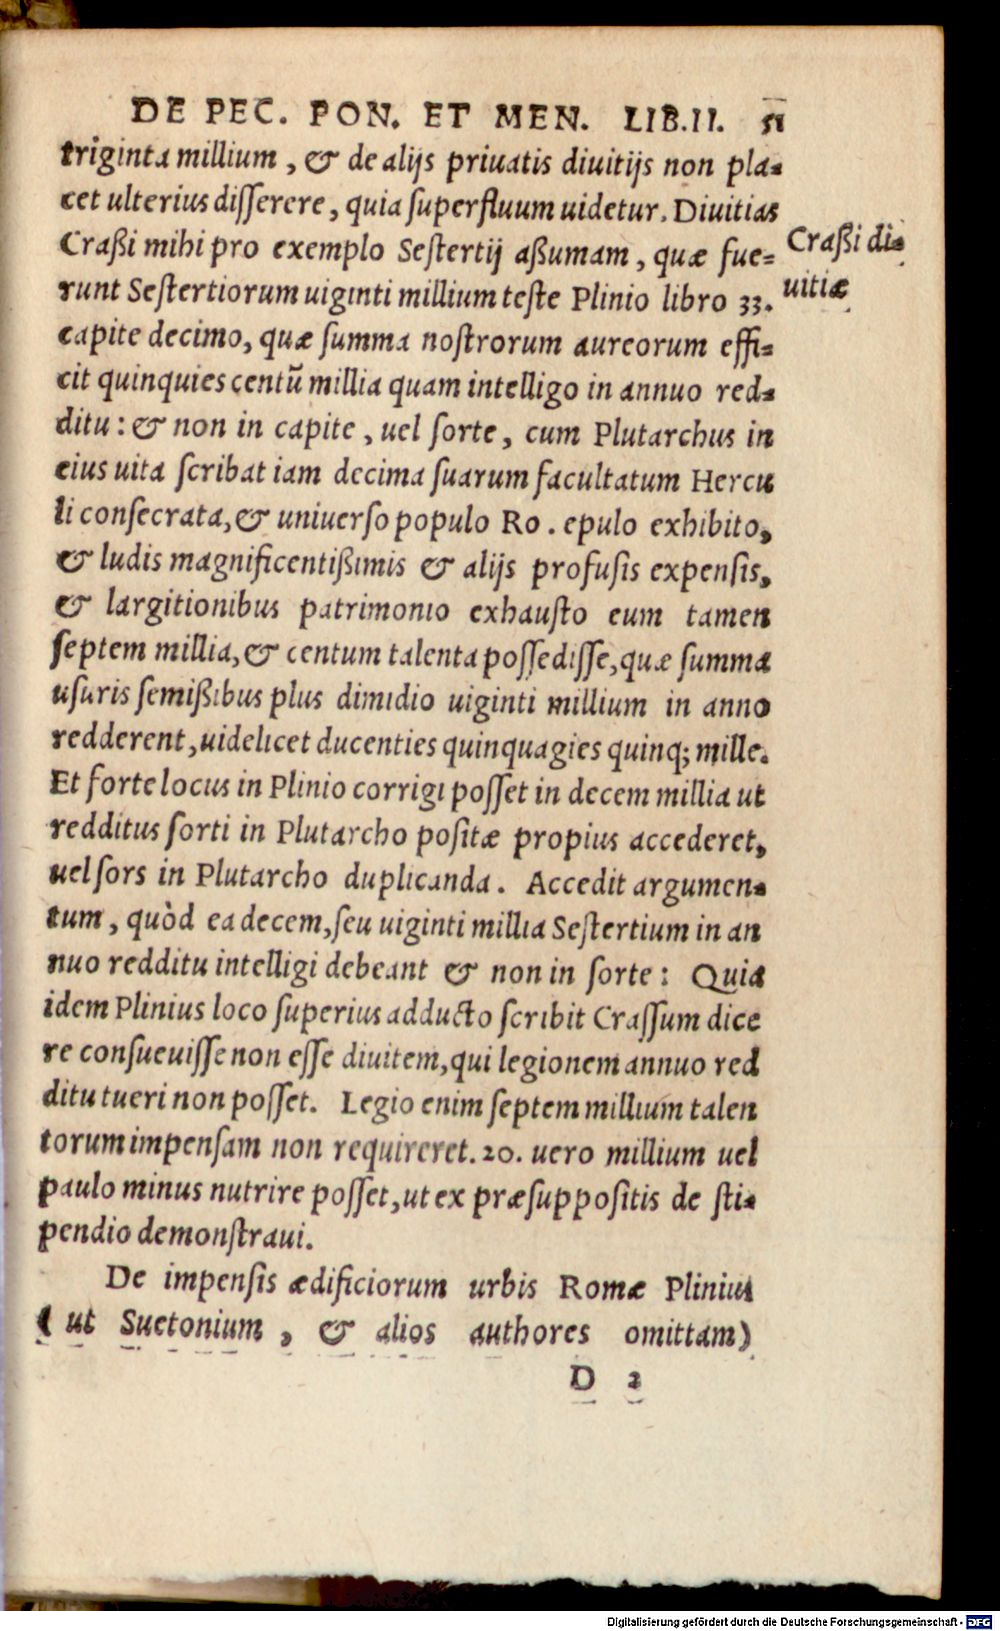 DE PEC. PON. ET MEN. LIB.II. 51
triginta millium, & de alijs priuatis diuitijs non pla-
cet ulterius disserere, quia superfluum uidetur. Diuitias
Craßi mihi pro exemplo Sestertij aßumam, quæ fue-
runt Sestertiorum uiginti millium teste Plinio libro 33.
capite decimo, quæ summa nostrorum aureorum effi-
cit quinquies centũ millia quam intelligo in annuo red-
ditu: & non in capite, uel sorte, cum Plutarchus in
eius uita scribat iam decima suarum facultatum Hercu
li consecrata, & uniuerso populo Ro. epulo exhibito,
& ludis magnificentißimis & alijs profusis expensis,
& largitionibus patrimonio exhausto eum tamen
septem millia, & centum talenta possedisse, quæ summa
usuris semißibus plus dimidio uiginti millium in anno
redderent, uidelicet ducenties quinquagies quinq; mille.
Et forte locus in Plinio corrigi posset in decem millia ut
redditus sorti in Plutarcho positæ propius accederet,
uel sors in Plutarcho duplicanda. Accedit argumen-
tum, quòd ea decem, seu uiginti millia Sestertium in an
nuo redditu intelligi debeant & non in sorte: Quia
idem Plinius loco superius adducto scribit Crassum dice
re consueuisse non esse diuitem, qui legionem annuo red
ditu tueri non posset. Legio enim septem millium talen
torum impensam non requireret. 20. uero millium uel
paulo minus nutrire posset, ut ex præsuppositis de sti-
pendio demonstraui.
De impensis ædificiorum urbis Romæ Plinius
( ut Suetonium, & alios authores omittam)
D 2
Craßi di-
uitiæ
Digitalisierung gefördert durch die Deutsche Forschungsgemeinschaft - DFG